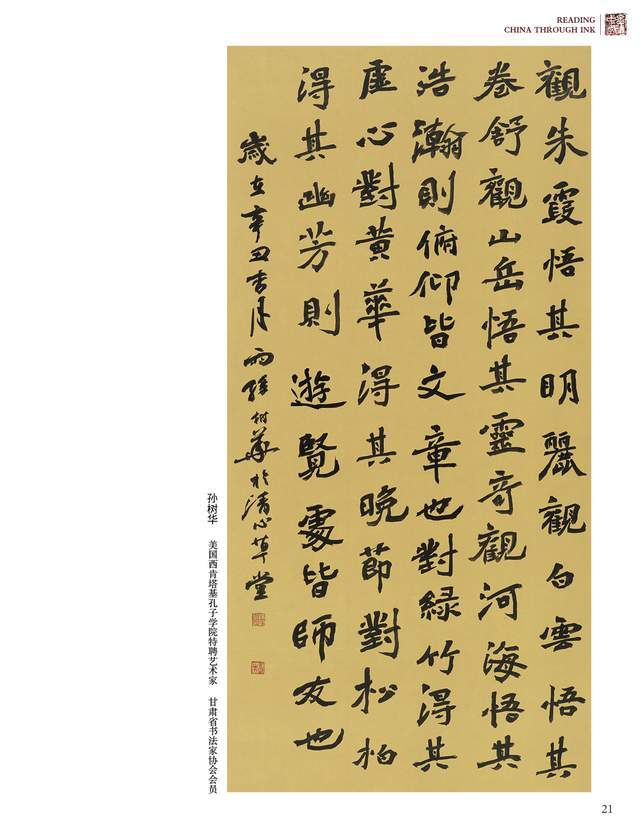 READING
CHINA THROUGH INK
觀朱霞悟其明麗觀白雲悟其
卷舒觀山岳悟其靈奇觀河海悟其
浩瀚則俯仰皆文章也對綠竹得其
虛心對黃華得其晚節對松柏
得其幽芳則遊覽處皆師友也
歲在辛丑杏月雨孫树華於清心草堂
孙树华 美国西肯塔基孔子学院特聘艺术家 甘肃省书法家协会会员
21